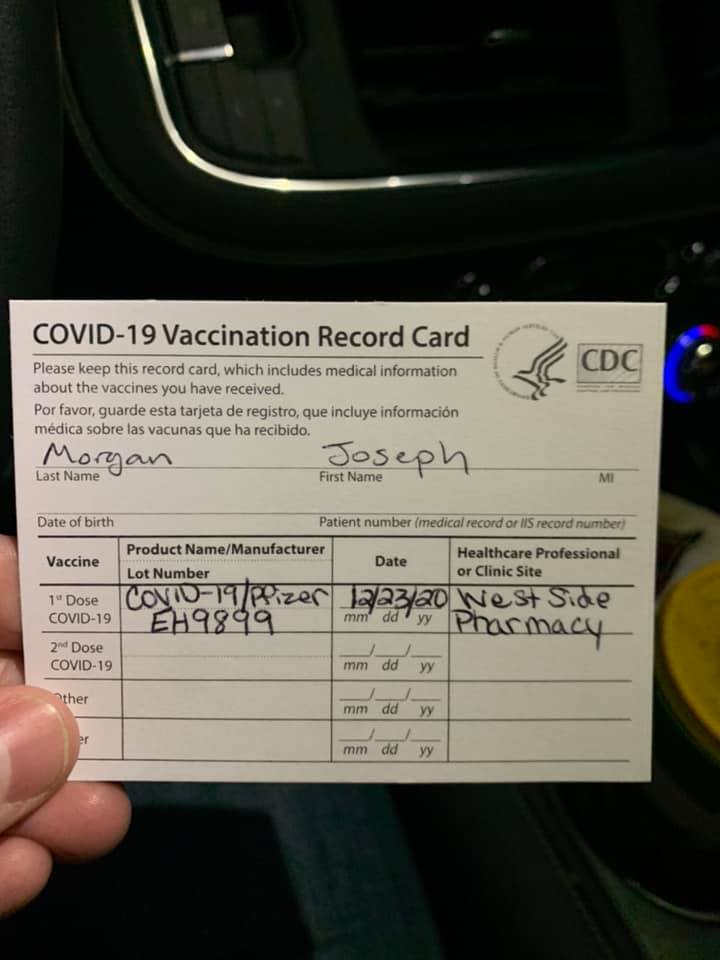 COVID-19 Vaccination Record Card
Please keep this record card, which includes medical information
about the vaccines you have received.
Por favor, guarde esta tarjeta de registro, que incluye información
médica sobre las vacunas que ha recibido.
CDC
Morgan Joseph
Last Name First Name MI
Date of birth Patient number (medical record or IIS record number)
Vaccine Product Name/Manufacturer Date Healthcare Professional
Lot Number or Clinic Site
1st Dose COVID-19/Pfizer 12/23/20 West Side
COVID-19 EH9899 mm dd yy Pharmacy
2nd Dose __/__/__
COVID-19 mm dd yy
Other __/__/__
mm dd yy
er __/__/__
mm dd yy